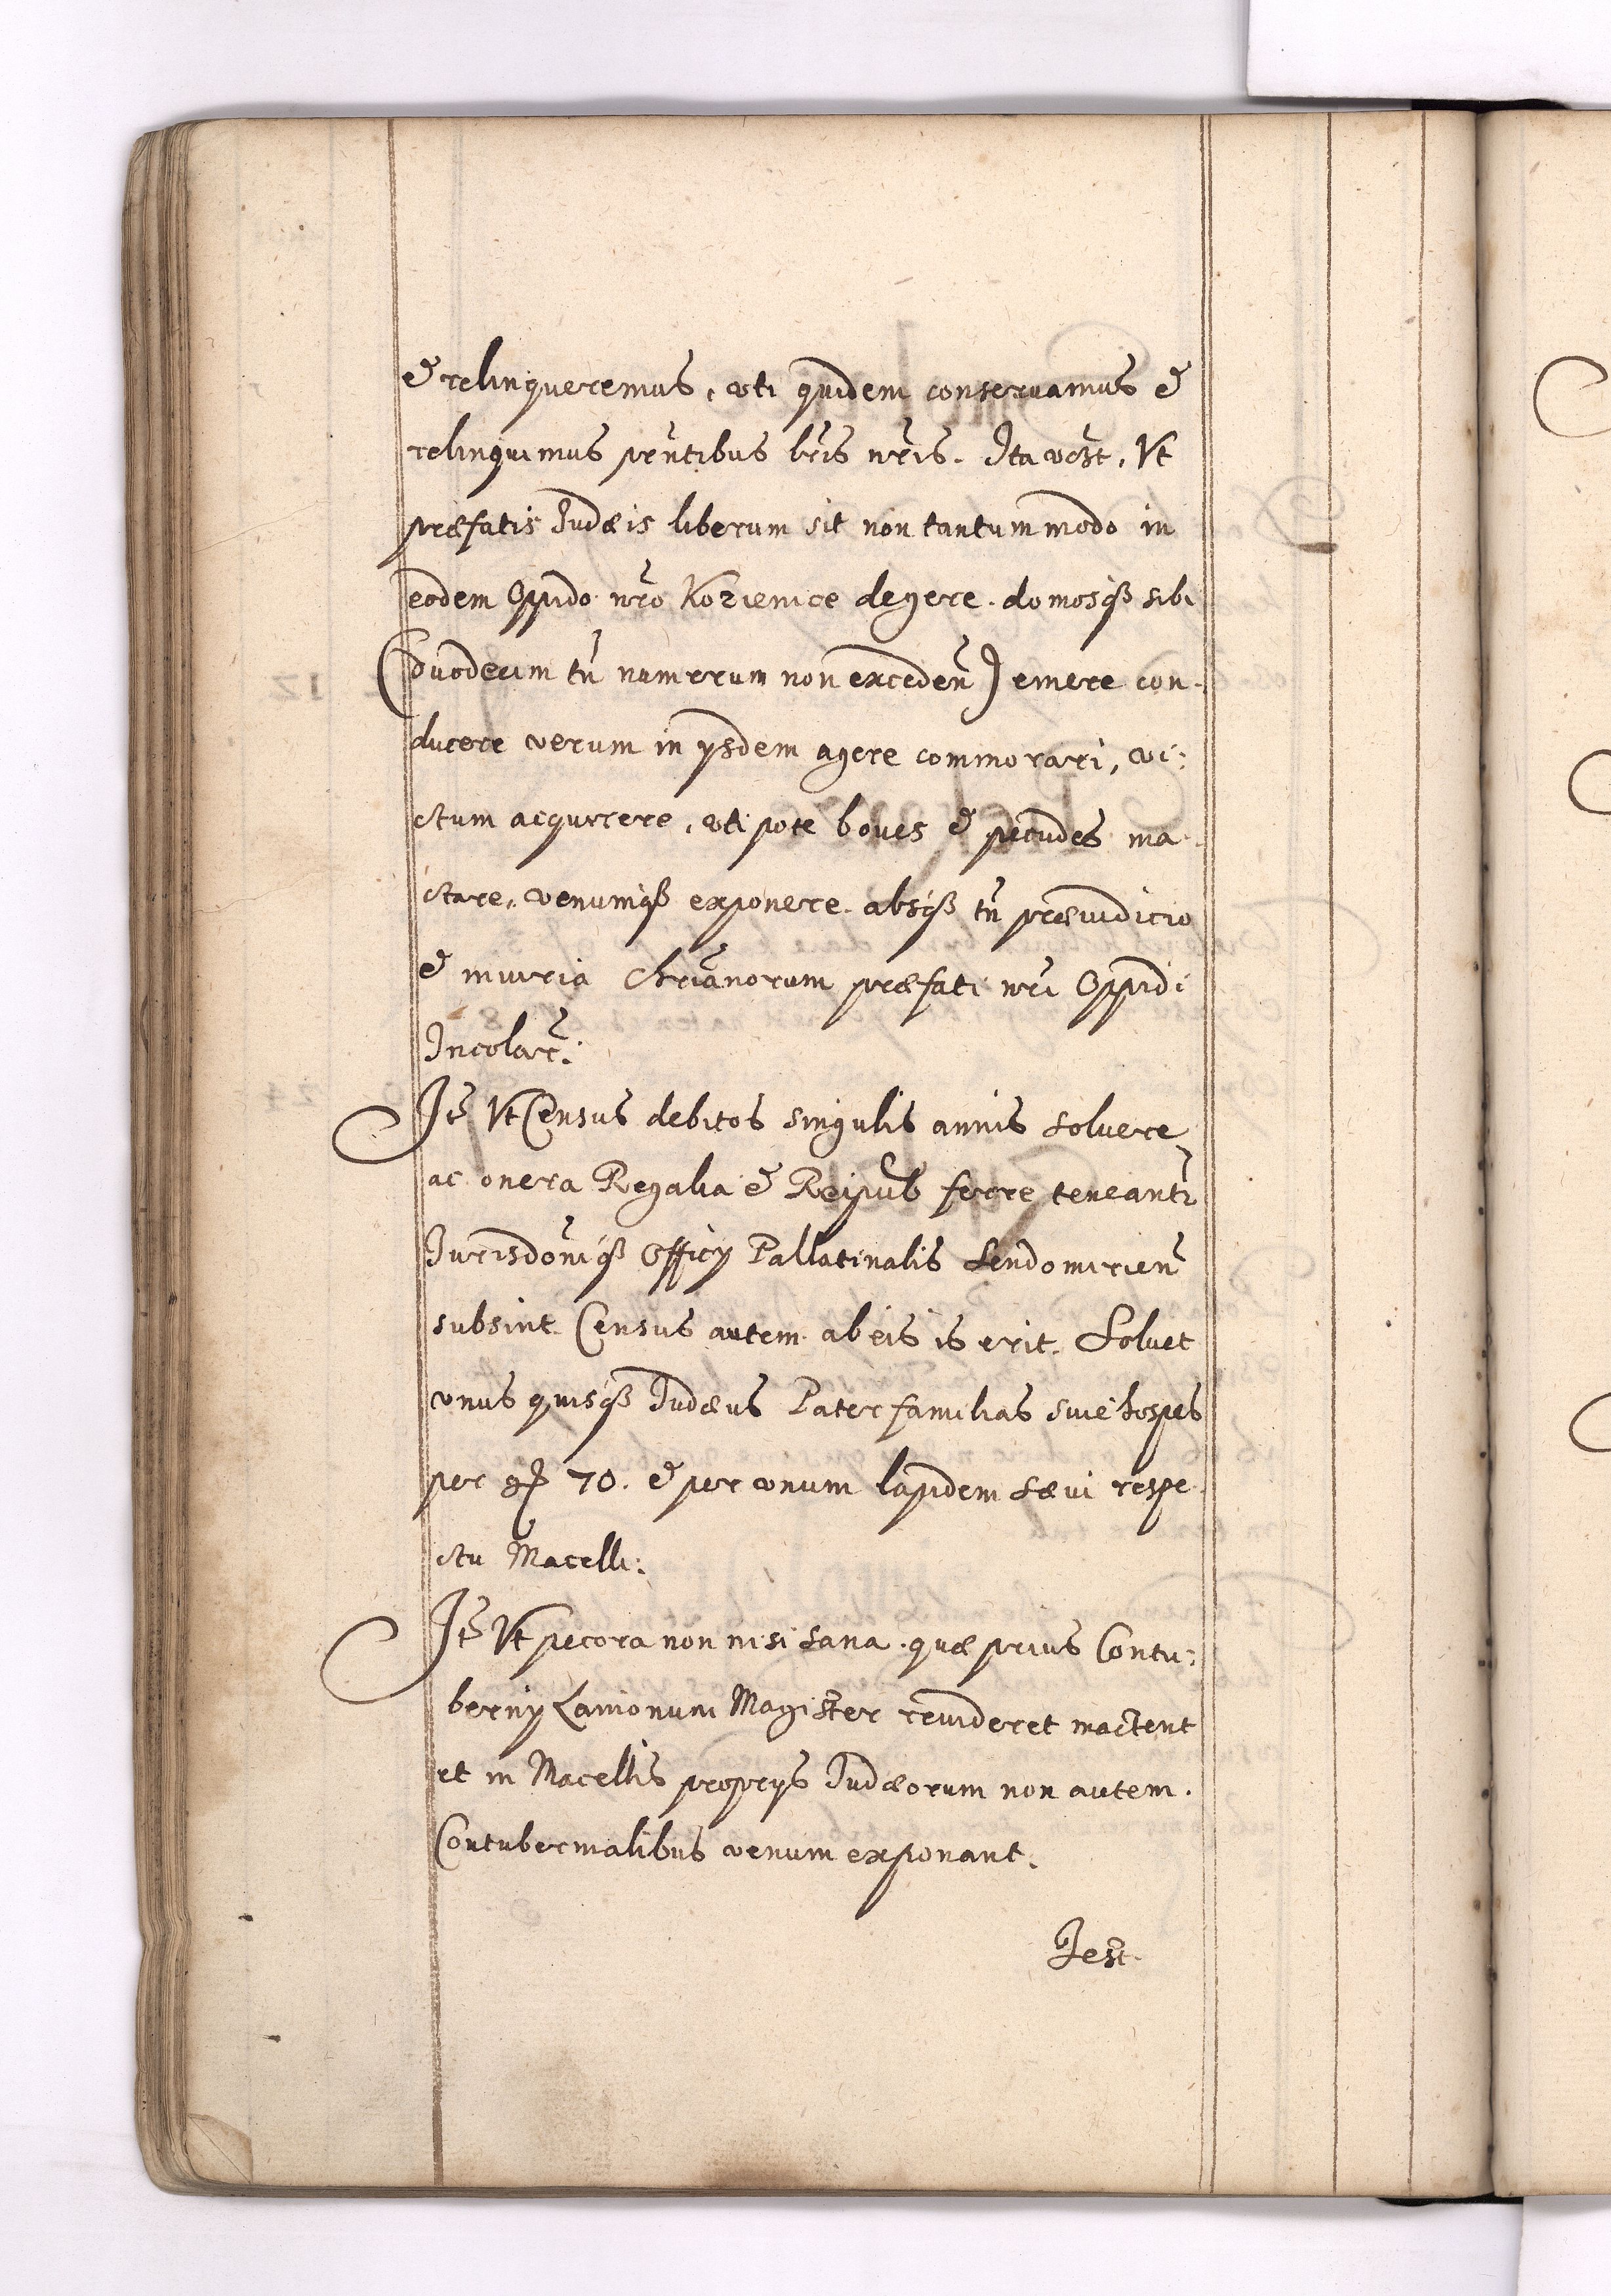 & relinqueremus, vti quidem conseruamus &
relinquimus pñtibus lris nris. Ita vczt, Vt
præfatis Judæis liberum sit non tantummodo in
eodem Oppido nro Kozienice degere. domosqß sibi
(duodecim tñ numerum non excedeñ) emere con-
ducere verum in ysdem agere commorari, vi:
ctum acquirere, vti pote boues & pecudes ma-
ctare, venumqß exponere. absqß tñ præiudicio
& iniuria Chrianorum præfati nri Oppidi
Incolar:
Jt Vt Census debitos singulis annis soluere
ac onera Regalia & Reipub ferre teneantr
Jurisdoniqß Officy Pallatinalis Sendomirien
subsint. Census autem ab eis is erit. Soluet
vnus quisqß Judæus Paterfamilias siue hospes
per gr 70. & per vnum lapidem sæui respe-
ctu Macelli:
Jt Vt pecora non nisi sana. quæ prius Contu:
berny Lanionum Magister reuideret mactent
et in Macellis proprys Judæorum non autem.
Contubernialibus venum exponant.
Jest.